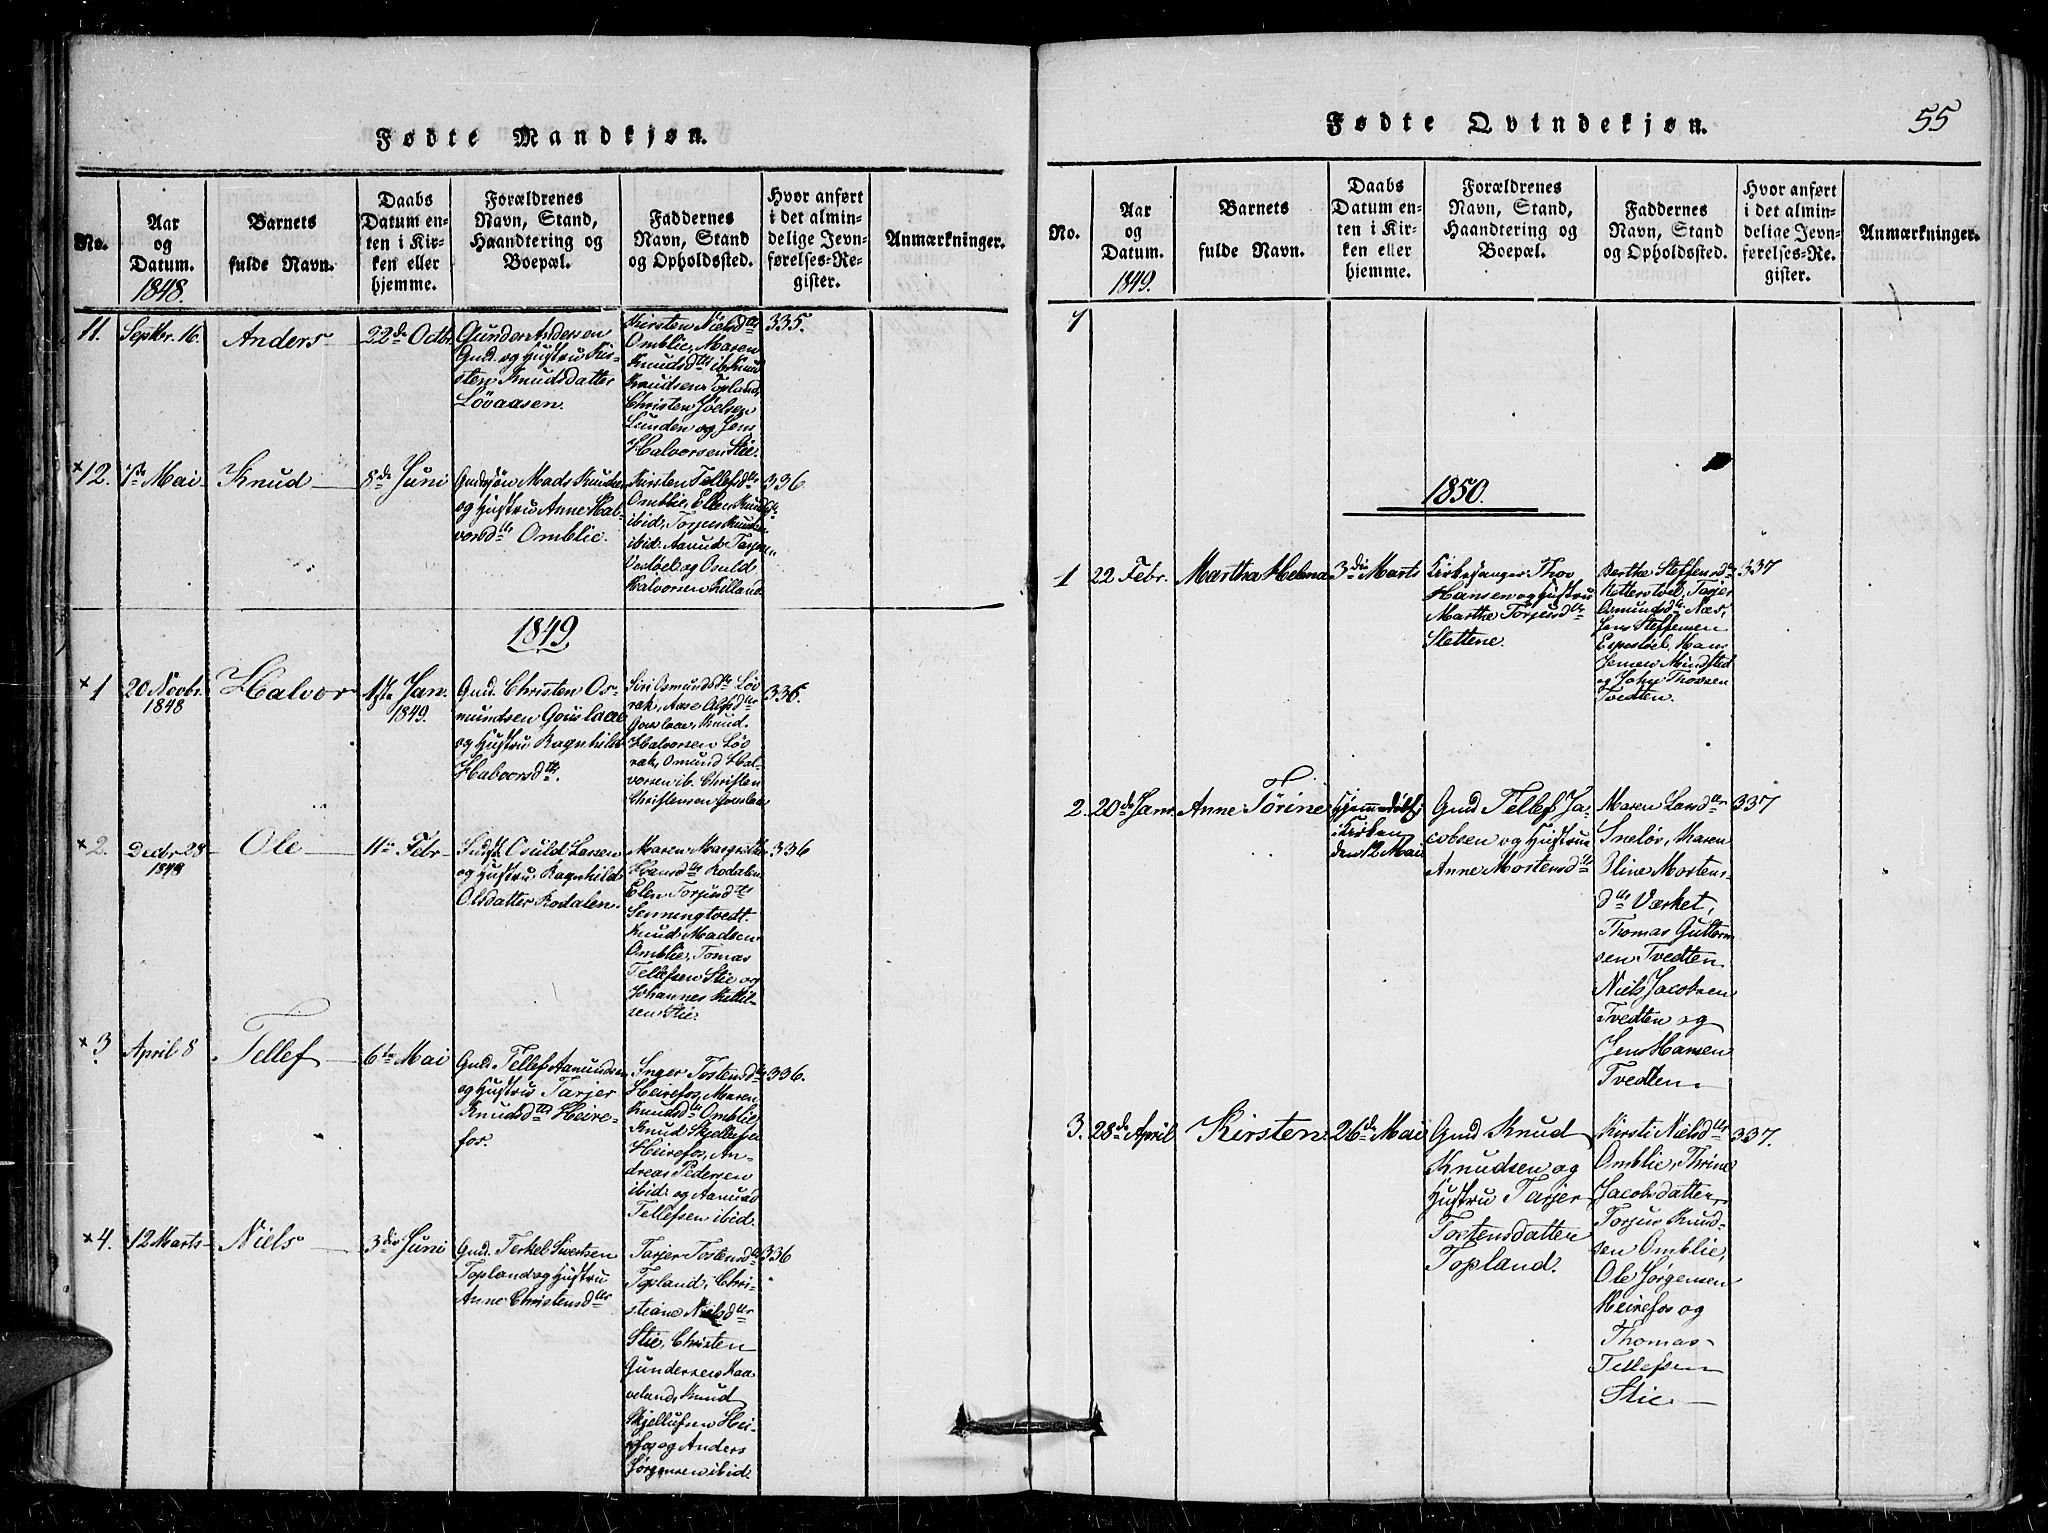 Fødte Mandkjøn.
No.
Aar
og
Datum.
1848.
Barnets
fulde Navn.
Daabs
Datum en-
ten i Kir-
ken eller
hjemme.
Forældrenes
Navn, Stand,
Haandtering og
Boepæl.
Faddernes
Navn, Stand
og Opholdssted.
Hvor anført
i det almin-
delige Jevn-
førelses-Re-
gister.
Anmærkninger.
11.
Septbr. 16.
Anders
22de Octbr
Gunder Andersen
Gmd. og Hustru Kir-
sten Knudsdatter
Løvaasen.
Kirsten Nielsdtr
Omblie, Maren
Knudsdtr ib. Knud
Knudsen Topland,
Christen Joelsen
Lunden og Jens
Halvorsen Stie.
335.
×12.
1ste Mai
Knud
8de Juni
Mads Knudsen
og Hustru Anne Hal-
vorsdtr Omblie.
Kirsten Tellefsdtr
Omblie, Ellen Knudsdtr
ibid, Torjus Knudsen
ibid. Aanud Tarjes.
Vesløel og Osuld
Halvorsen Rilland.
336
1849
×1
20 Novbr.
1848
Halvor
1ste Jan.
1849.
Gmd. Christen Os-
mundsen Gouslaae
og Hustru Ragnhild
Halvorsdtr.
Siri Osmundsdtr Løv
rak, Aase Olsdtr
Gouslaae, Knud
Halvorsen Løv
rak, Osmund Hal-
vorsen ib. Christen
Christensen Gouslaae
336.
×2.
Decbr 28
1848
Ole
11te Febr
Indst. Osuld Larsen
og Hustru Ragnhild
Olsdatter Rodalen.
Maren Margrethe
Hansdtr Rodalen
Elen Torjusdtr
Senningtvedt.
Knud Madsen
Omblie, Tomas
Tellefsen Stie og
Johannes Kettil-
sen Stie.
336
×3.
April 8
Tellef
6te Mai
Gmd. Tellef Aanundsen
og Hustru Tarjer
Knudsdtr Heire-
fos.
Inger Tostensdtr
Heirefos, Maren
Knudsdtr Omblie,
Knud Skjellefsen
Heirefos, An-
dreas Pedersen
ibid. og Aanund
Tellefsen ibid.
336.
×4.
12 Marts
Niels
3die Juni
Gmd. Terkel Sivertsen
Topland og Hustru
Anne Christensdtr
Tarjer Tostensdtr
Topland, Chri-
stiane Nielsdtr
Stie, Christen
Gundersen Kaa-
veland, Knud
Skjellufsen Hei-
refos og Anders
Jørgensen ibid.
336
Fødte Qvindekjøn.
55
No.
Aar
og
Datum.
1849.
Barnets
fulde Navn.
Daabs
Datum en-
ten i Kir-
ken eller
hjemme.
Forældrenes
Navn, Stand,
Haandtering og
Boepæl.
Faddernes
Navn, Stand
og Opholdssted.
Hvor anført
i det almin-
delige Jevn-
førelses-Re-
gister.
Anmærkninger.
1850.
1
22 Febr.
Martha Helena
3die Marts
Kirkesanger Thov
Hansen og Hustru
Marthe Torjusdtr
Slettene.
Berthe Steffensdtr
Tarjer
Osmundsdtr Næs,
Jens Steffensen
Espestøel, Hans
Jensen Mindsted
og John Thovsen
Tvedten.
337
2.
20de Janr.
Anne Tørine
Hjemmedøbt
i Kirken
den 12 Mai
Gmd Tellef Ja-
cobsen og Hustrue
Anne Mortensdtr
Maren Larsdtr
Sneløs, Karen
Oline Mortens-
dtr Værket,
Thomas Gutterm
sen Tvedten
Niels Jacobsen
Tvedten og
Jens Hansen
Tvedten
337
3.
28de April
Kirsten
26de Mai
Gmd Knud
Knudsen og
Hustru Tarjer
Tostensdatter
Topland.
Kirsti Nielsdtr
Omblie, Thrine
Jacobsdatter
Torjus Knud-
sen Omblie,
Ole Jørgensen
Heirefos og
Thomas
Tellefsen
Stie
337.